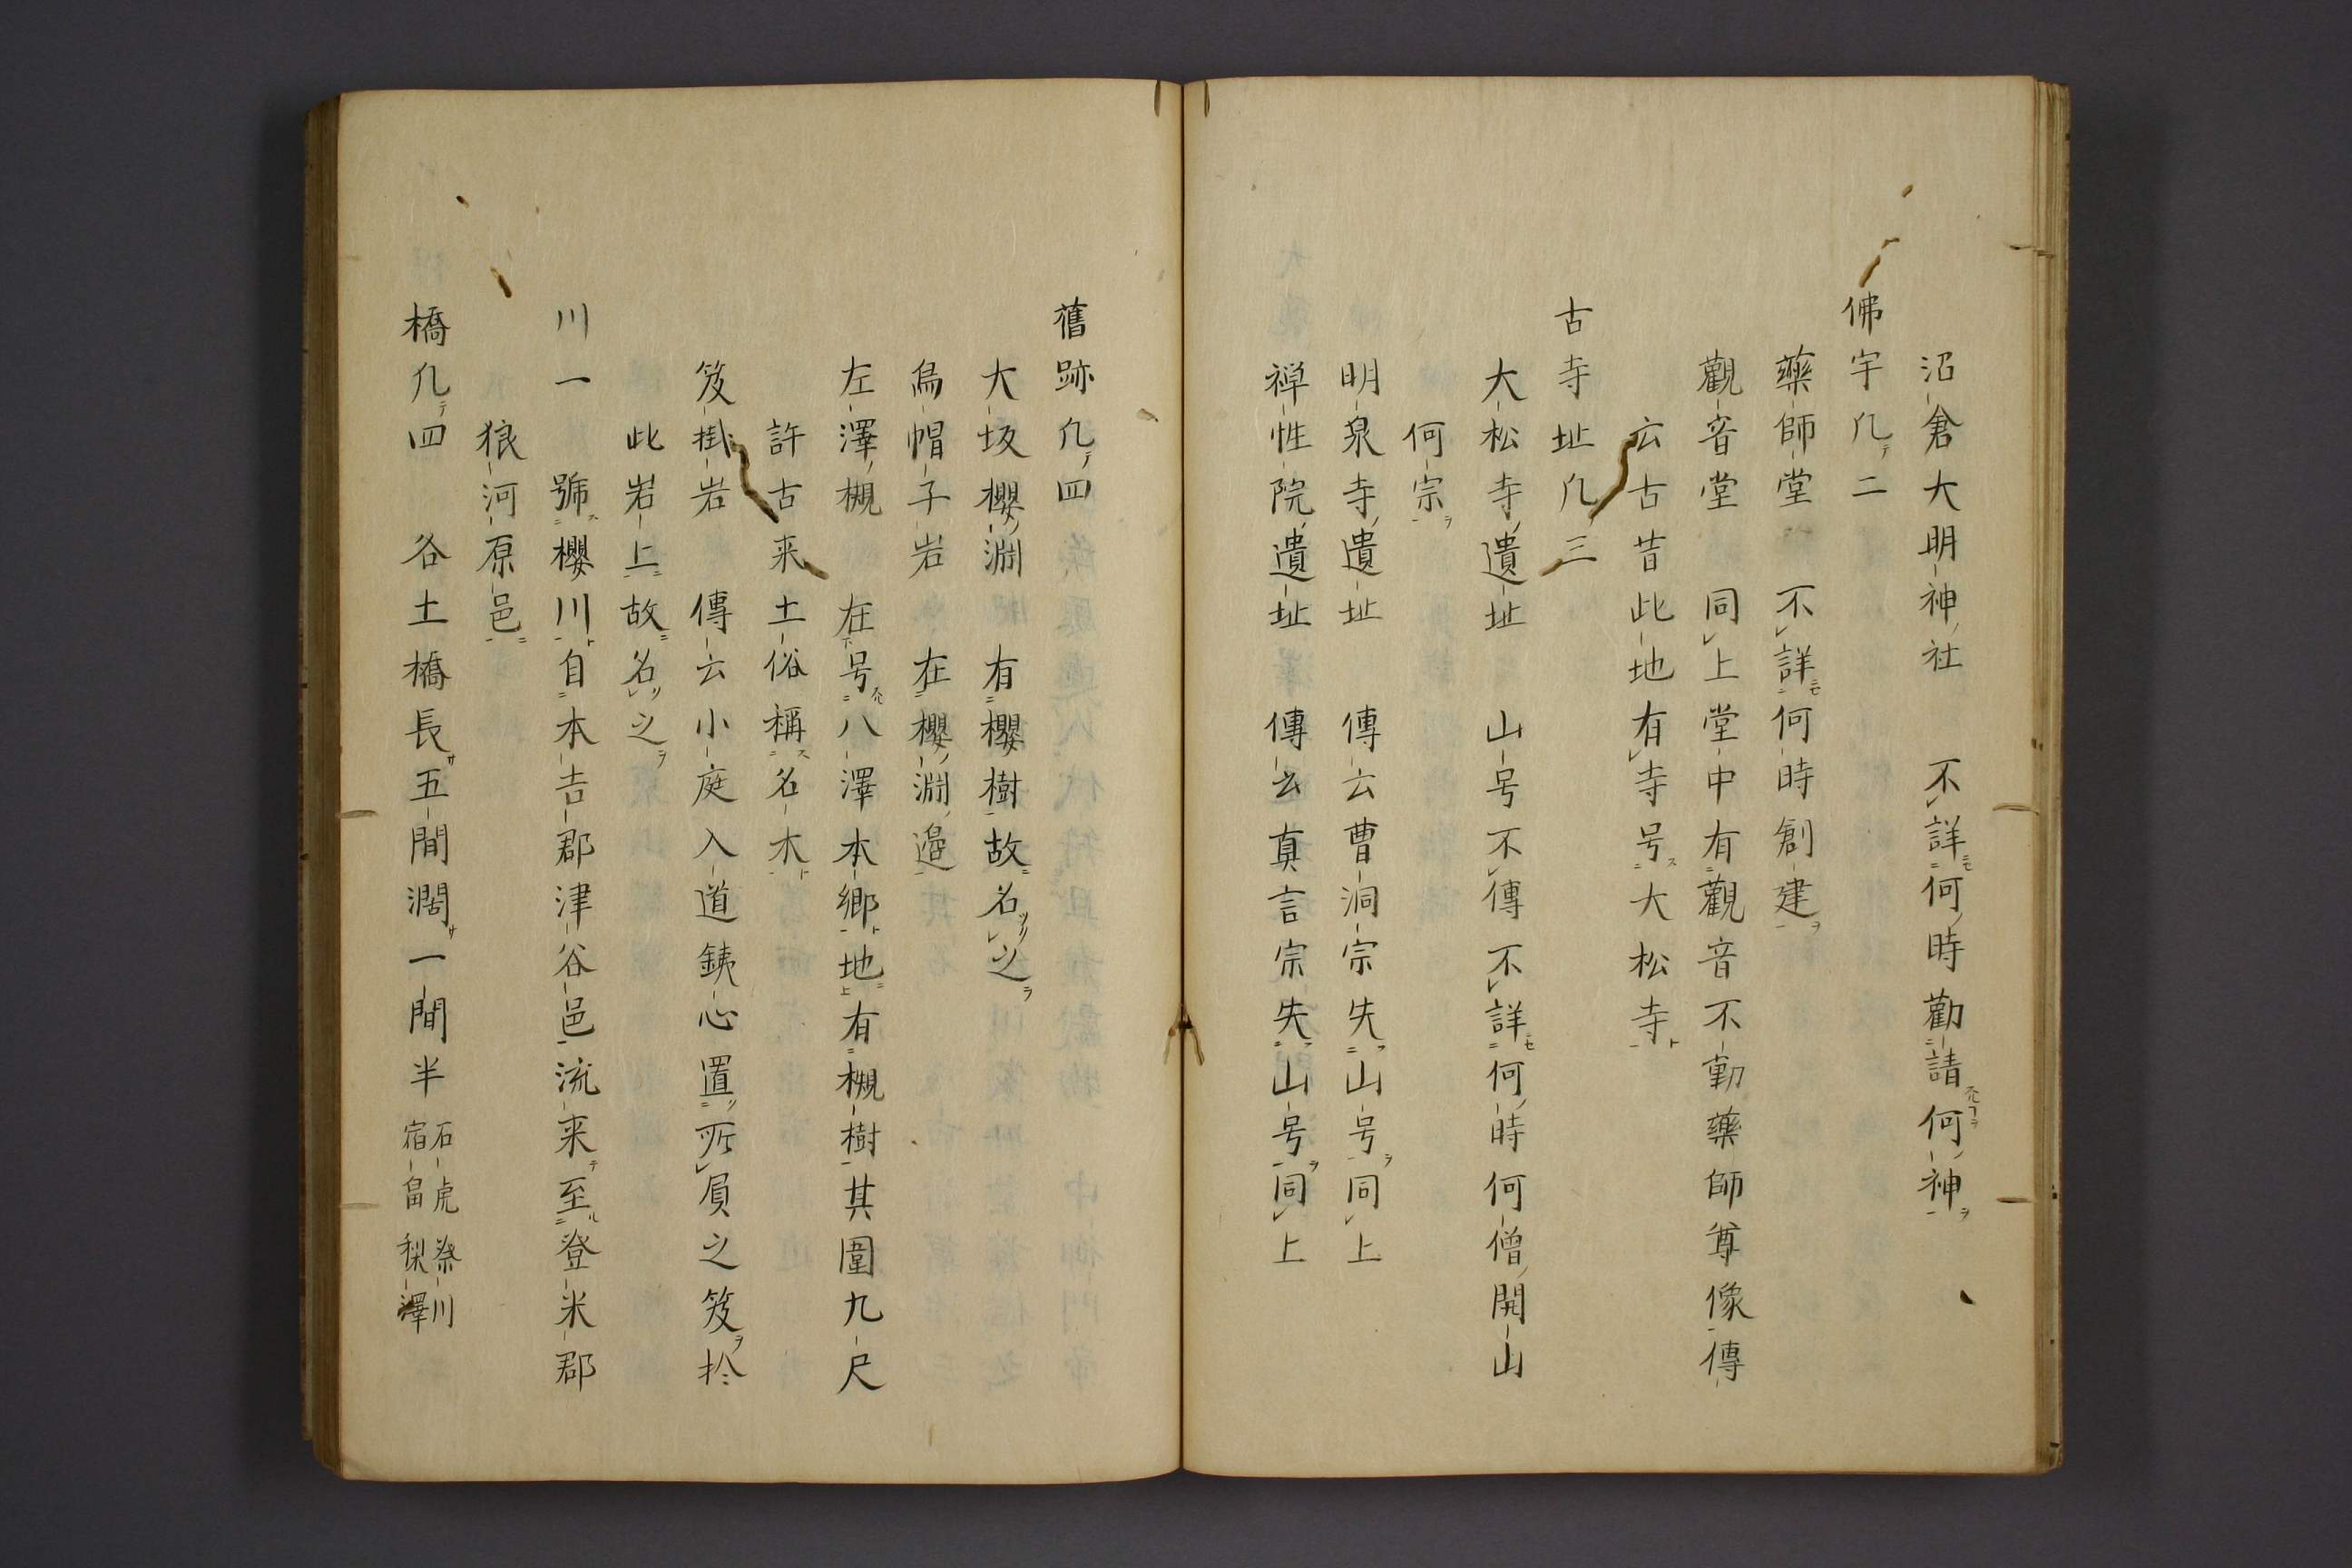 沼倉大明神社 不詳何時勸請何神
佛宇凢二
藥師堂 不詳何時創建
觀音堂 同上堂中有觀音不動藥師尊像傳
云古昔此地有寺号大松寺
古寺址凢三
大松寺遺址 山号不傳不詳何時何僧開山
何宗
明泉寺遺址 傳云曹洞宗失山号同上
禅性院遺址 傳云真言宗失山号同上
舊跡凢四
大坂櫻淵 有櫻樹故名之
烏帽子岩 在櫻淵邉
左澤槻 在号八澤本鄉地有槻樹其圍九尺
許古来土俗稱名木
笈掛岩 傳云小庭入道銕心置所屓之笈扵
此岩上故名之
川一 號櫻川自本吉郡津谷邑流来至登米郡
狼河原邑
橋凢四 各土橋長五間濶一間半 石虎 祭川
宿畄 梨澤